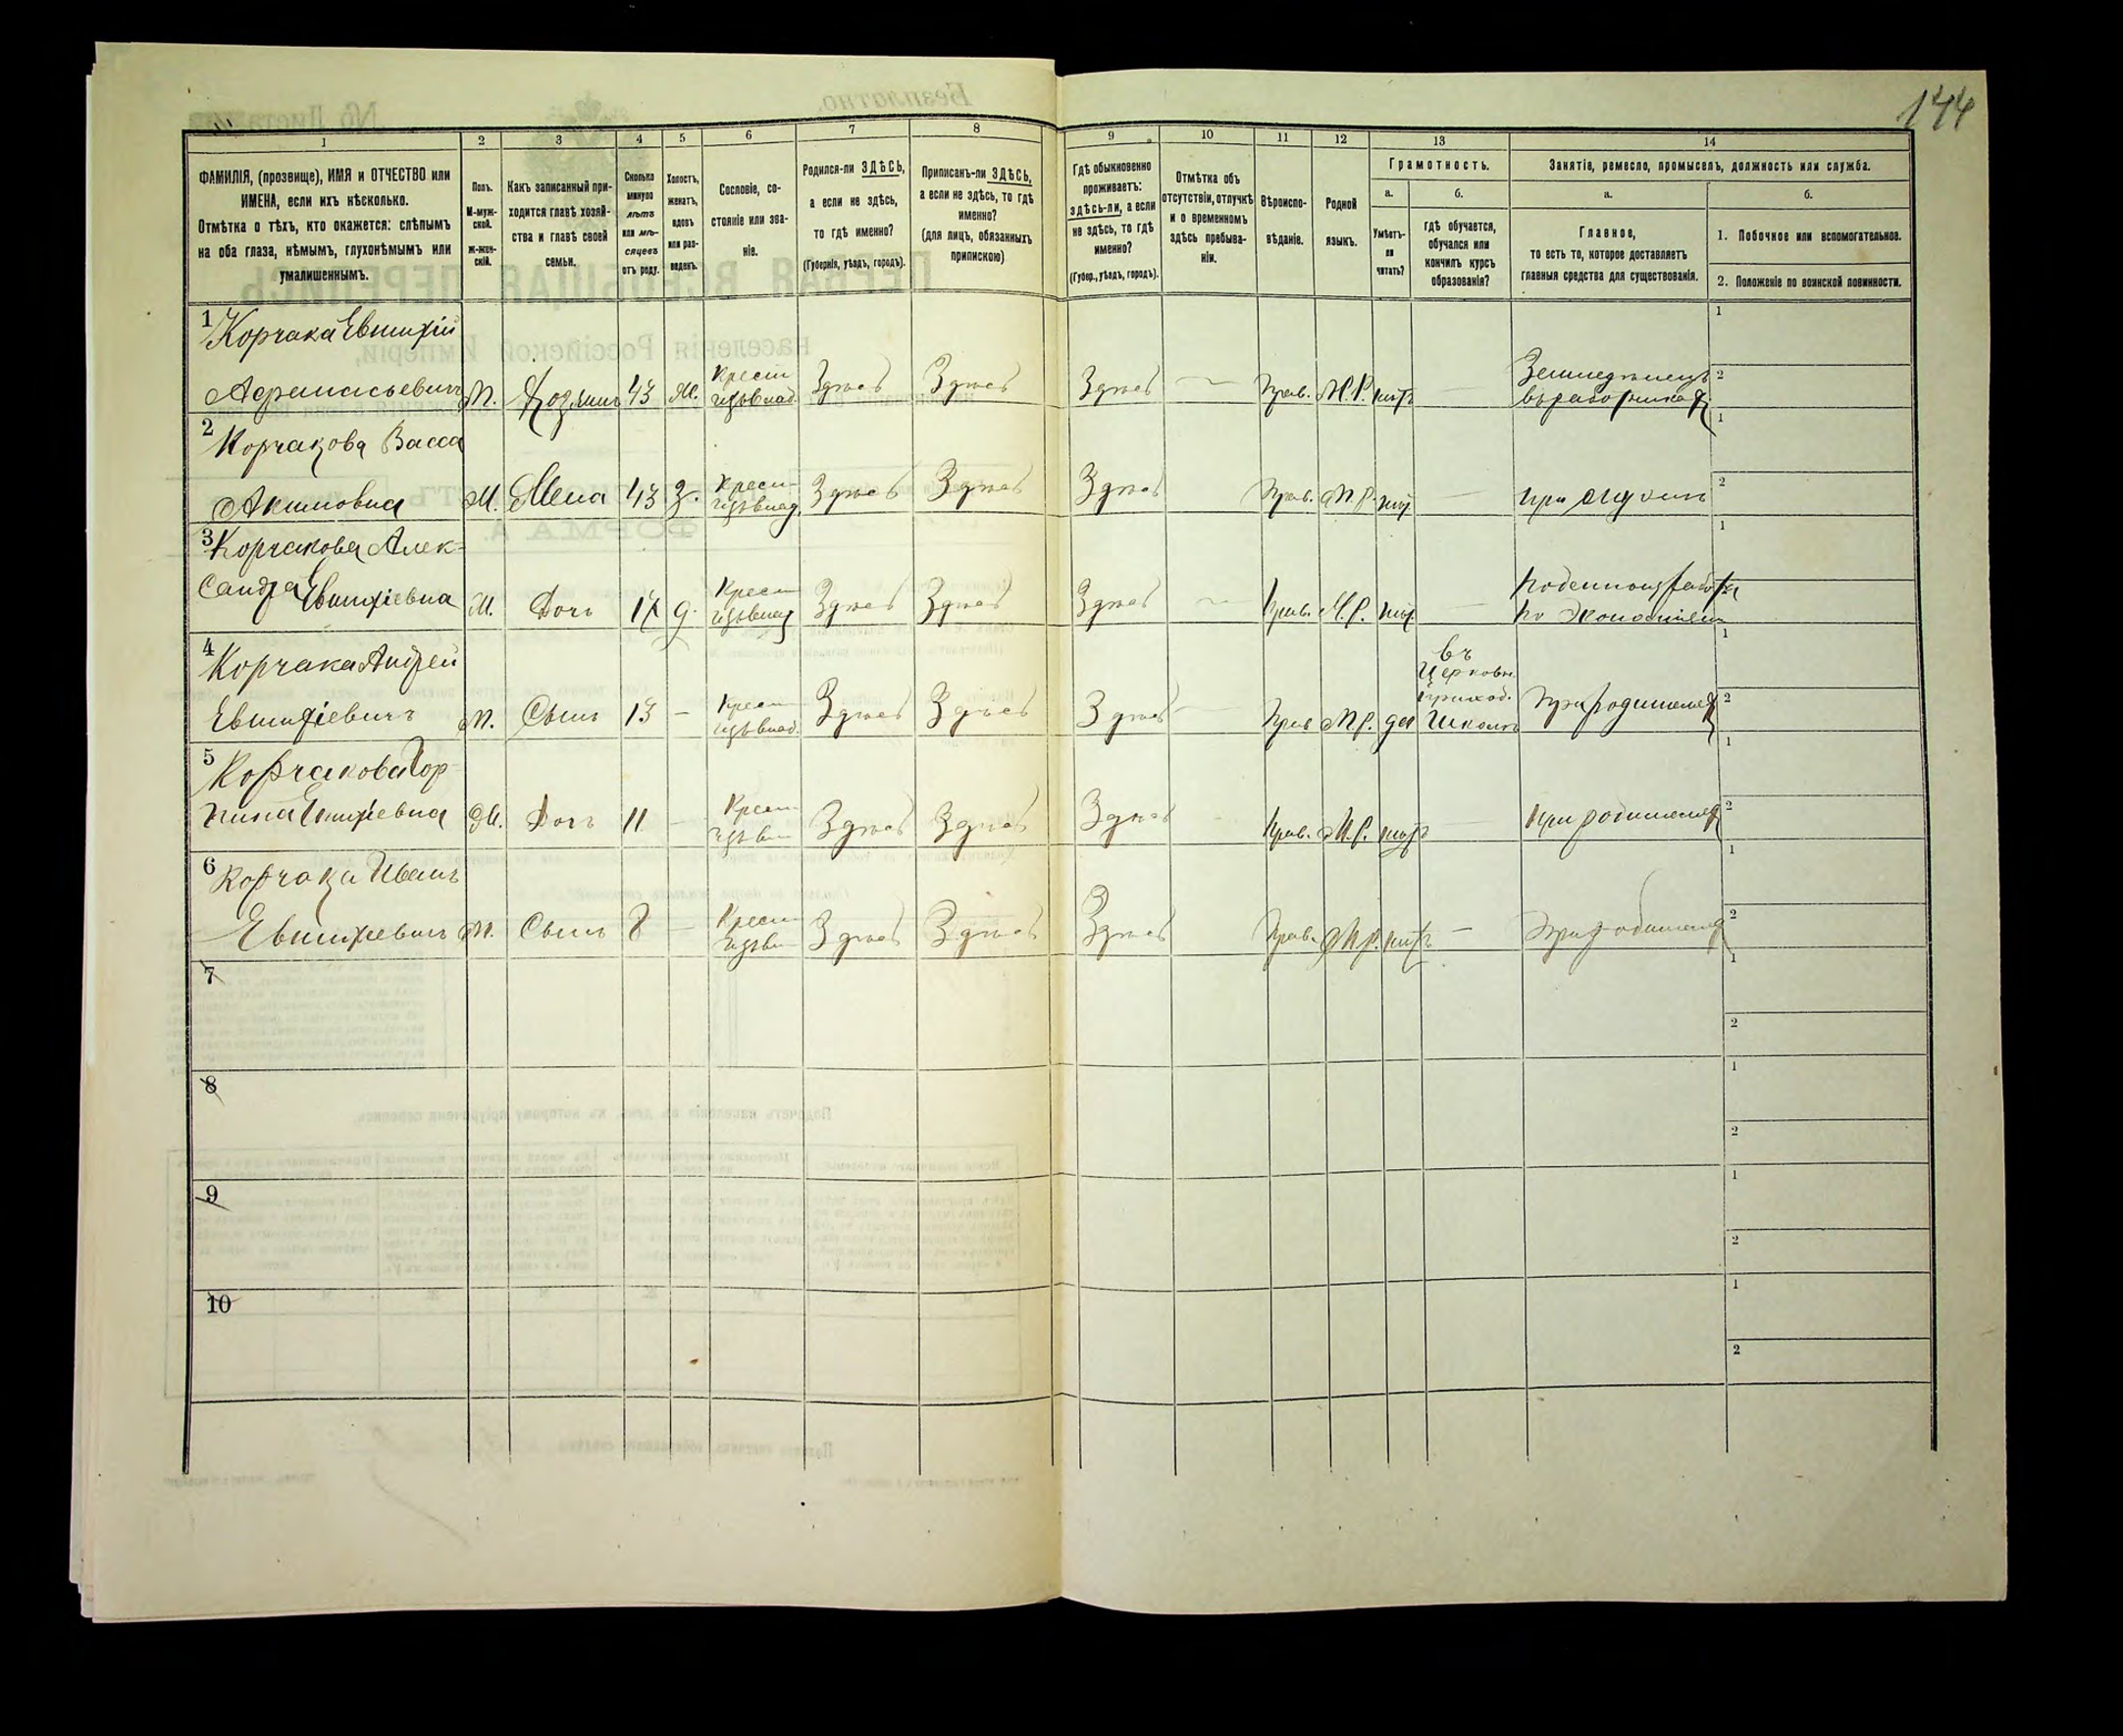 144
1
2
3
4
5
6
7
8
9
10
11
12
13
14
ФАМИЛІЯ, (прозвище), ИМЯ и ОТЧЕСТВО или
ИМЕНА, если ихъ нѣсколько.
Отмѣтка о тѣхъ, кто окажется: слѣпымъ
на оба глаза, нѣмымъ, глухонѣмымъ или
умалишеннымъ.
Полъ.
М-муж-
ской.
ж-жен-
скій.
Какъ записанный при-
ходится главѣ хозяй-
ства и главѣ своей
семьи.
Сколько
минуло
лѣтъ
или мѣ-
сяцевъ
отъ роду.
Холостъ,
женатъ,
вдовъ
или раз-
веденъ.
Сословіе, со-
стояніе или зва-
ніе.
Родился-ли ЗДѢСЬ,
а если не здѣсь,
то гдѣ именно?
(Губернія, уѣздъ, городъ).
Приписанъ-ли ЗДѢСЬ,
а если не здѣсь, то гдѣ
именно?
(для лицъ, обязанныхъ
припискою)
Гдѣ обыкновенно
проживаетъ:
здѣсь-ли, а если
не здѣсь, то гдѣ
именно?
(Губер., уѣздъ, городъ).
Отмѣтка объ
отсутствіи, отлучкѣ
и о временномъ
здѣсь пребыва-
ніи.
Вѣроиспо-
вѣданіе.
Родной
языкъ.
Грамотность.
а.
Умѣетъ-
ли
читать?
б.
гдѣ обучается,
обучался или
кончилъ курсъ
образованія?
Занятіе, ремесло, промыселъ, должность или служба.
а.
Главное,
то есть то, которое доставляетъ
главныя средства для существованія.
б.
1. Побочное или вспомогательное.
2. Положеніе по воинской повинности.
1 Корчака Евтифій
Афанасьевичъ М. Хозяинъ 43 Ж. Крестъ Здѣсь Здѣсь Здѣсь Прав. М.Р. нѣтъ Земледѣлецъ
2 Корчакова Васса
Акимовна Ж. Жена 43 З. Крест Здѣсь Здѣсь Здѣсь Прав. М.Р. нѣт
3 Корчакова Алек-
сандра Евтифіевна Ж. Дочь 17 д. Крест Здѣсь Здѣсь Здѣсь Прав. М.Р. нѣт
4 Корчака Андрей
Евтифіевичъ М. Сынъ 13 — Крест Здѣсь Здѣсь Здѣсь Прав М.Р. да
въ
Церковн.
приход.
Школѣ
При родителях
5 Корчакова Гор-
пина Евтифіевна Ж. Дочь 11 — Крест Здѣсь Здѣсь Здѣсь Прав. М.Р. нѣтъ При родителях
6 Корчака Иванъ
Евтифіевичъ М. Сынъ 8 — Крест Здѣсь Здѣсь Здѣсь Прав. М.Р. нѣтъ — При родителях
7
8
9
10